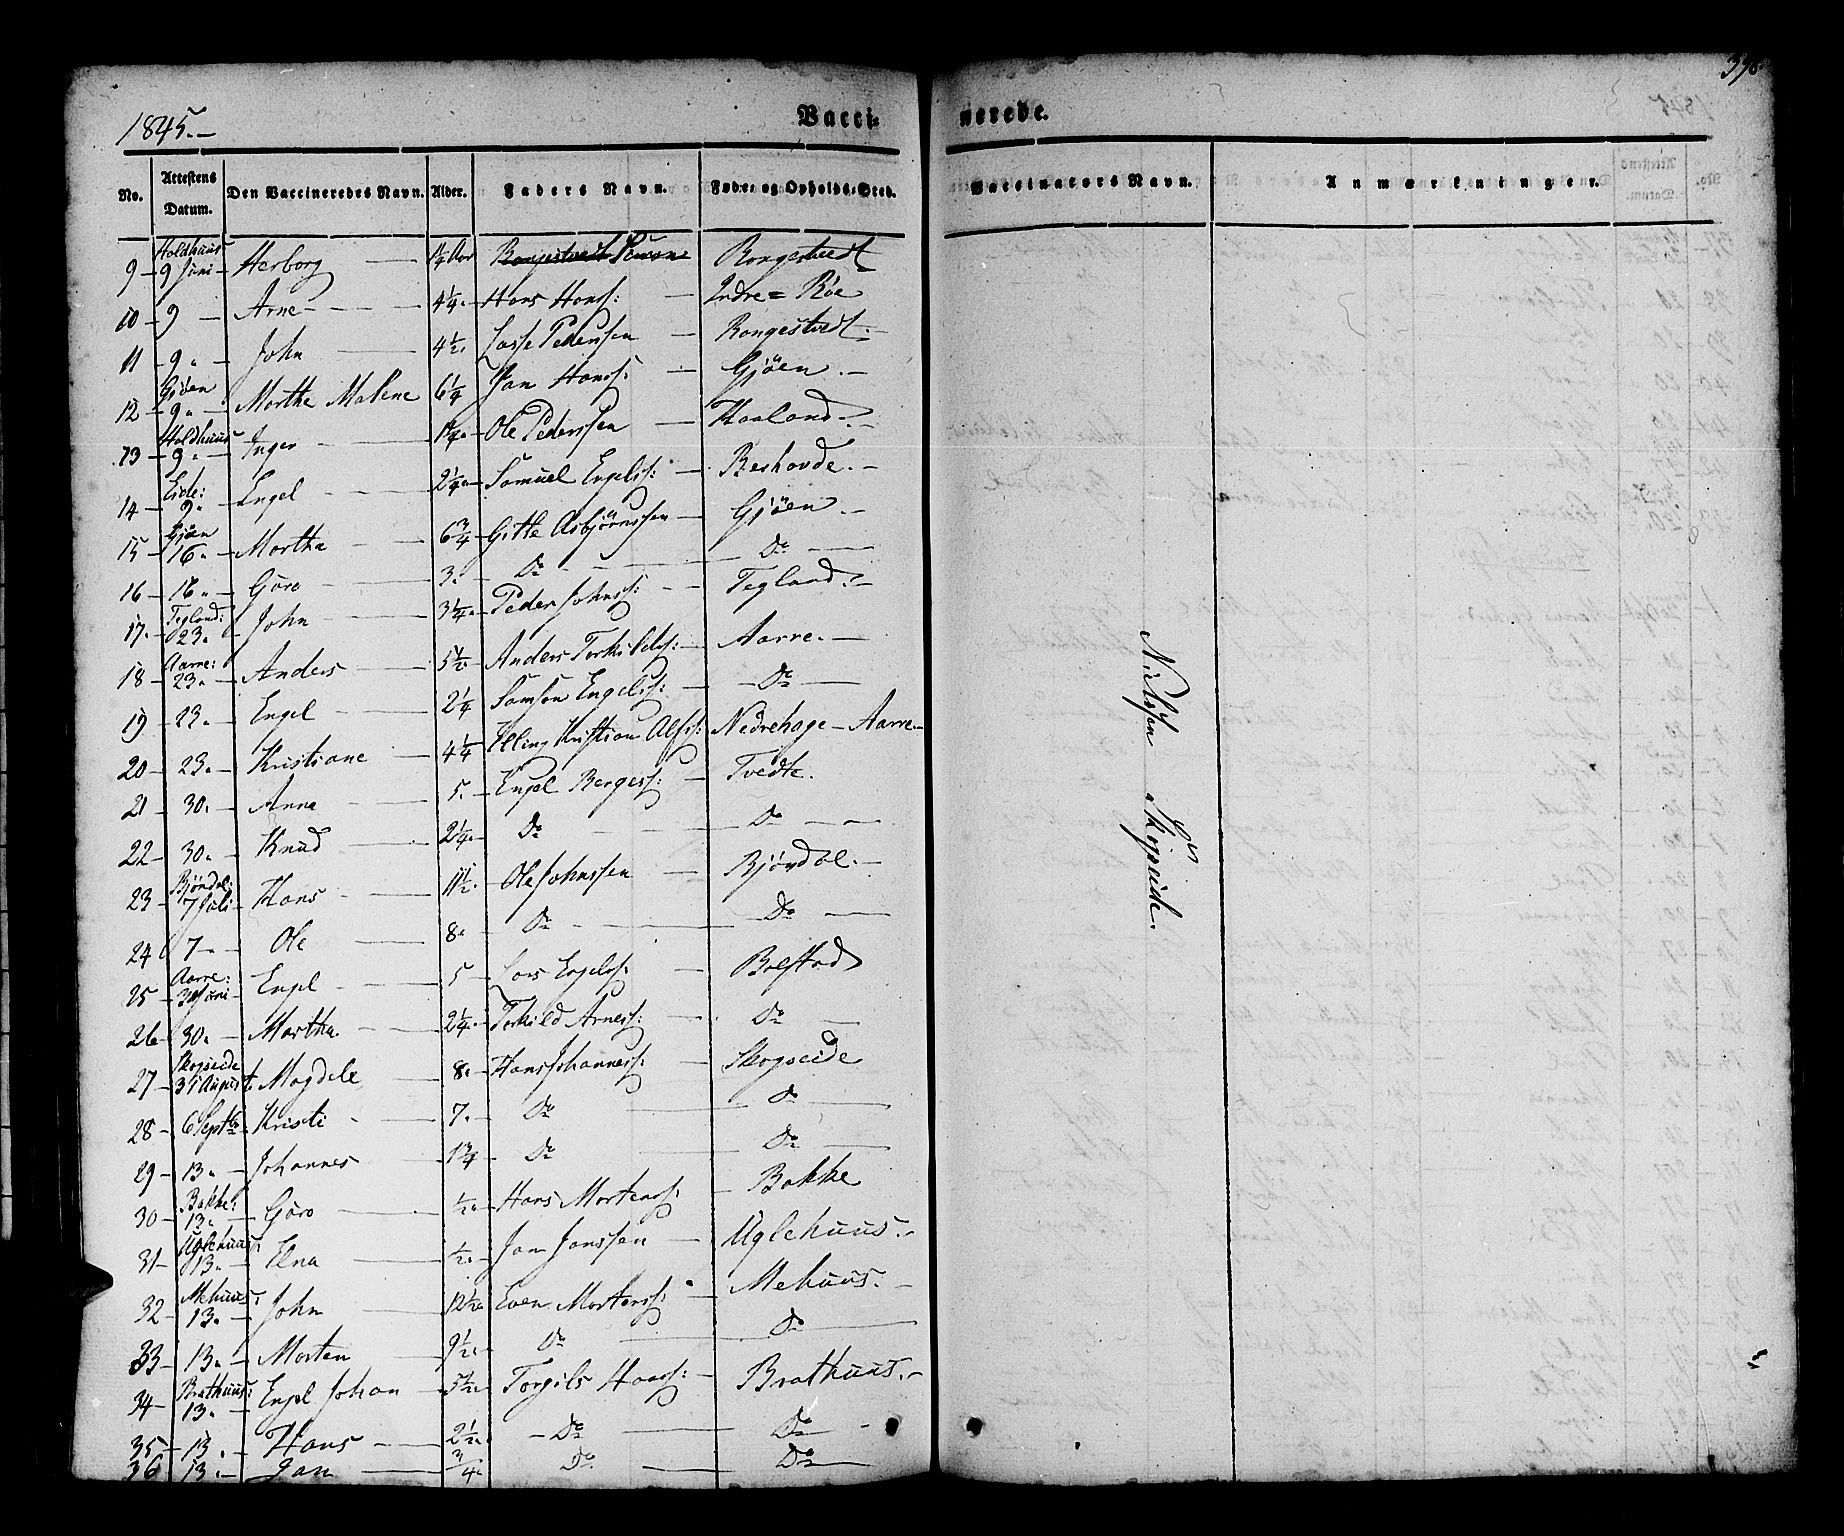 1845.— Vaccinerede.
No. Attestens Datum. Den Vaccineredes Navn. Alder. Faders Navn. Føde- og Opholds-Sted. Vaccinators Navn. Anmærkninger.
9 – Holdhuus 9 Juni – Herborg — 1/4 Aar Rongestvedt
10 – 9 – Arne — 4 1/4 Hans Hanss: — Indre = Røe
11 – 9 " – John — 4 1/2 Lasse Pederssen — Rongestvedt.
12 – Gjöen 9 " – Marthe Malene 6 1/4 Jan Hanss: — Gjöen.—
13 – Holdhuus 9 " – Inger — Ole Pederssen — Haaland.—
14 – 9 " Engel — 2 1/4 Samuel Engelss: — Reshovde.—
15 – Gjöen 16 " – Martha — 6 3/4 Gitle Asbjørnssen — Gjöen.—
16 – 16 " – Göro — 3. – Do — Do —
17 – Tegland: 23 " – John — 3 1/4 Peder Johnss: — Tegland.—
18 – Aarre: 23 " – Anders — 5 1/2 Anders Torkildss: — Aarre.—
19 – 23 " – Engel — 2 1/4 Samson Engelss: — Do —
20 – 23 " – Kristiane — 4 1/4 Elling Kristian Alfss: Nedrehage – Aarre
21 – 30 " – Anna — 5. – Engel Bergess: — Tvedte.
22 – 30 " – Knud — 2 1/4 Do — Do —
23 – Bjöndal: 7 Juli – Hans — 11 1/2 Ole Johnssen — Bjöndal.—
24 7 " – Ole — 8. Do — Do —
25 – Aarre: 30 Juni – Engel — 5 Lars Engelss: — Bolstad
26 – 30 " – Martha — 2 1/4 Torkild Arness: — Do —
27 – Skogseide 31 August Magdele — 8. – Hans Johanness: — Skogseide
28 – 6 Septbr Kristi — 7. – Do — Do —
29 – 13 " – Johannes — 1 3/4 Do — Do —
30 – Bakke: 13 " – Göro — 1/2 Hans Mortenss: — Bakke
31 – Uglehuus: 13 " – Elna — 1/2 Jan Janssen — Uglehuus.—
32 – Mehuus: 13 " – John — 12 1/2 Even Mortenss: — Mehuus.—
33 – 13 " – Morten — 9 1/2 Do — Do
34 – Brathuus: 13 " – Engel Johan — 5 1/2 Torgils Hanss: — Brathuus.—
35 – 13 " – Hans — 2 1/2 – Do — Do —
36 – 13 " – Jan — 3/4 Do — Do —
Nielssen Skogseide.